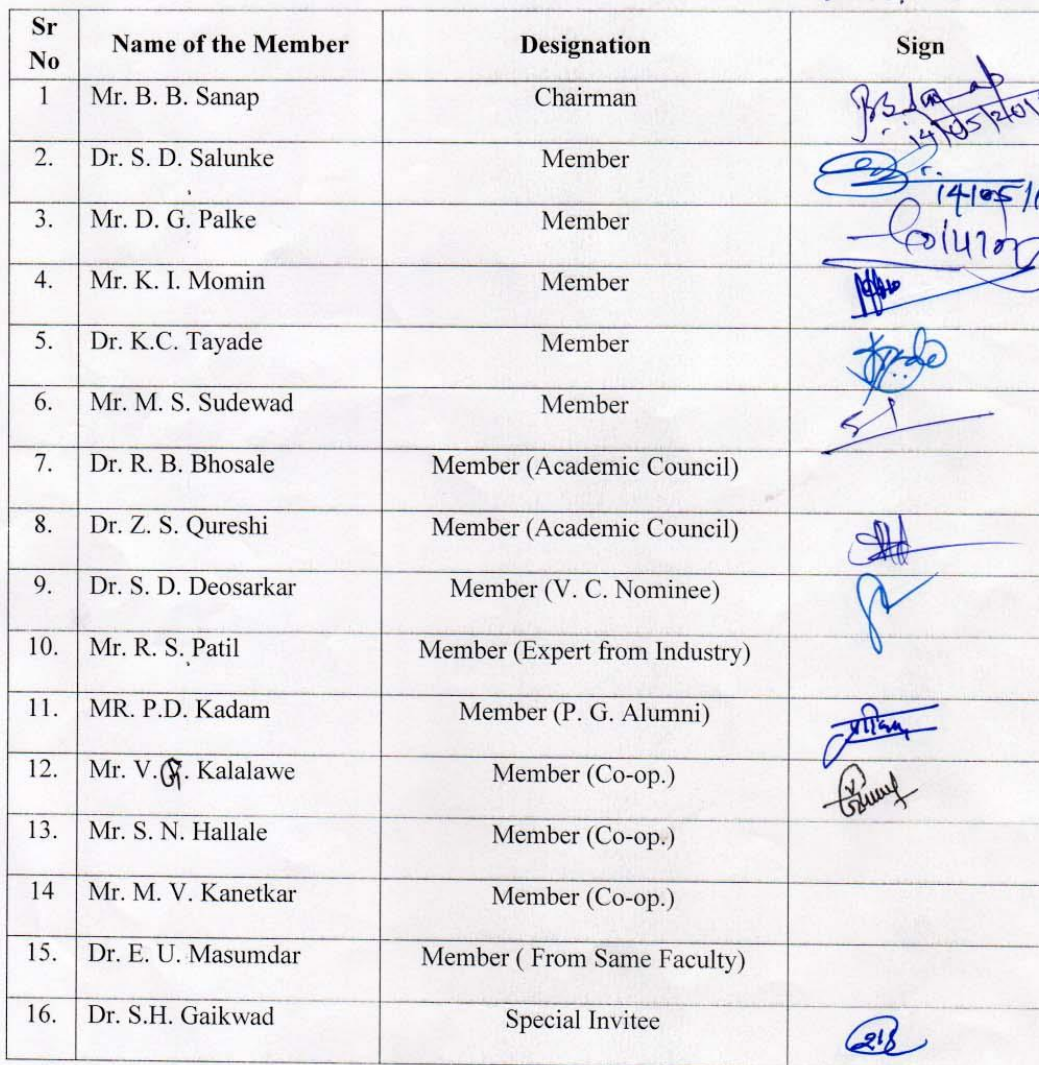 Sr No Name of the Member Designation Sign
1 Mr. B. B. Sanap Chairman
2. Dr. S. D. Salunke Member
14/05/1
3. Mr. D. G. Palke Member
4. Mr. K. I. Momin Member
5. Dr. K.C. Tayade Member
6. Mr. M. S. Sudewad Member
7. Dr. R. B. Bhosale Member (Academic Council)
8. Dr. Z. S. Qureshi Member (Academic Council)
9. Dr. S. D. Deosarkar Member (V. C. Nominee)
10. Mr. R. S. Patil Member (Expert from Industry)
11. MR. P.D. Kadam Member (P. G. Alumni)
12. Mr. V. Kalalawe Member (Co-op.)
13. Mr. S. N. Hallale Member (Co-op.)
14 Mr. M. V. Kanetkar Member (Co-op.)
15. Dr. E. U. Masumdar Member ( From Same Faculty)
16. Dr. S.H. Gaikwad Special Invitee